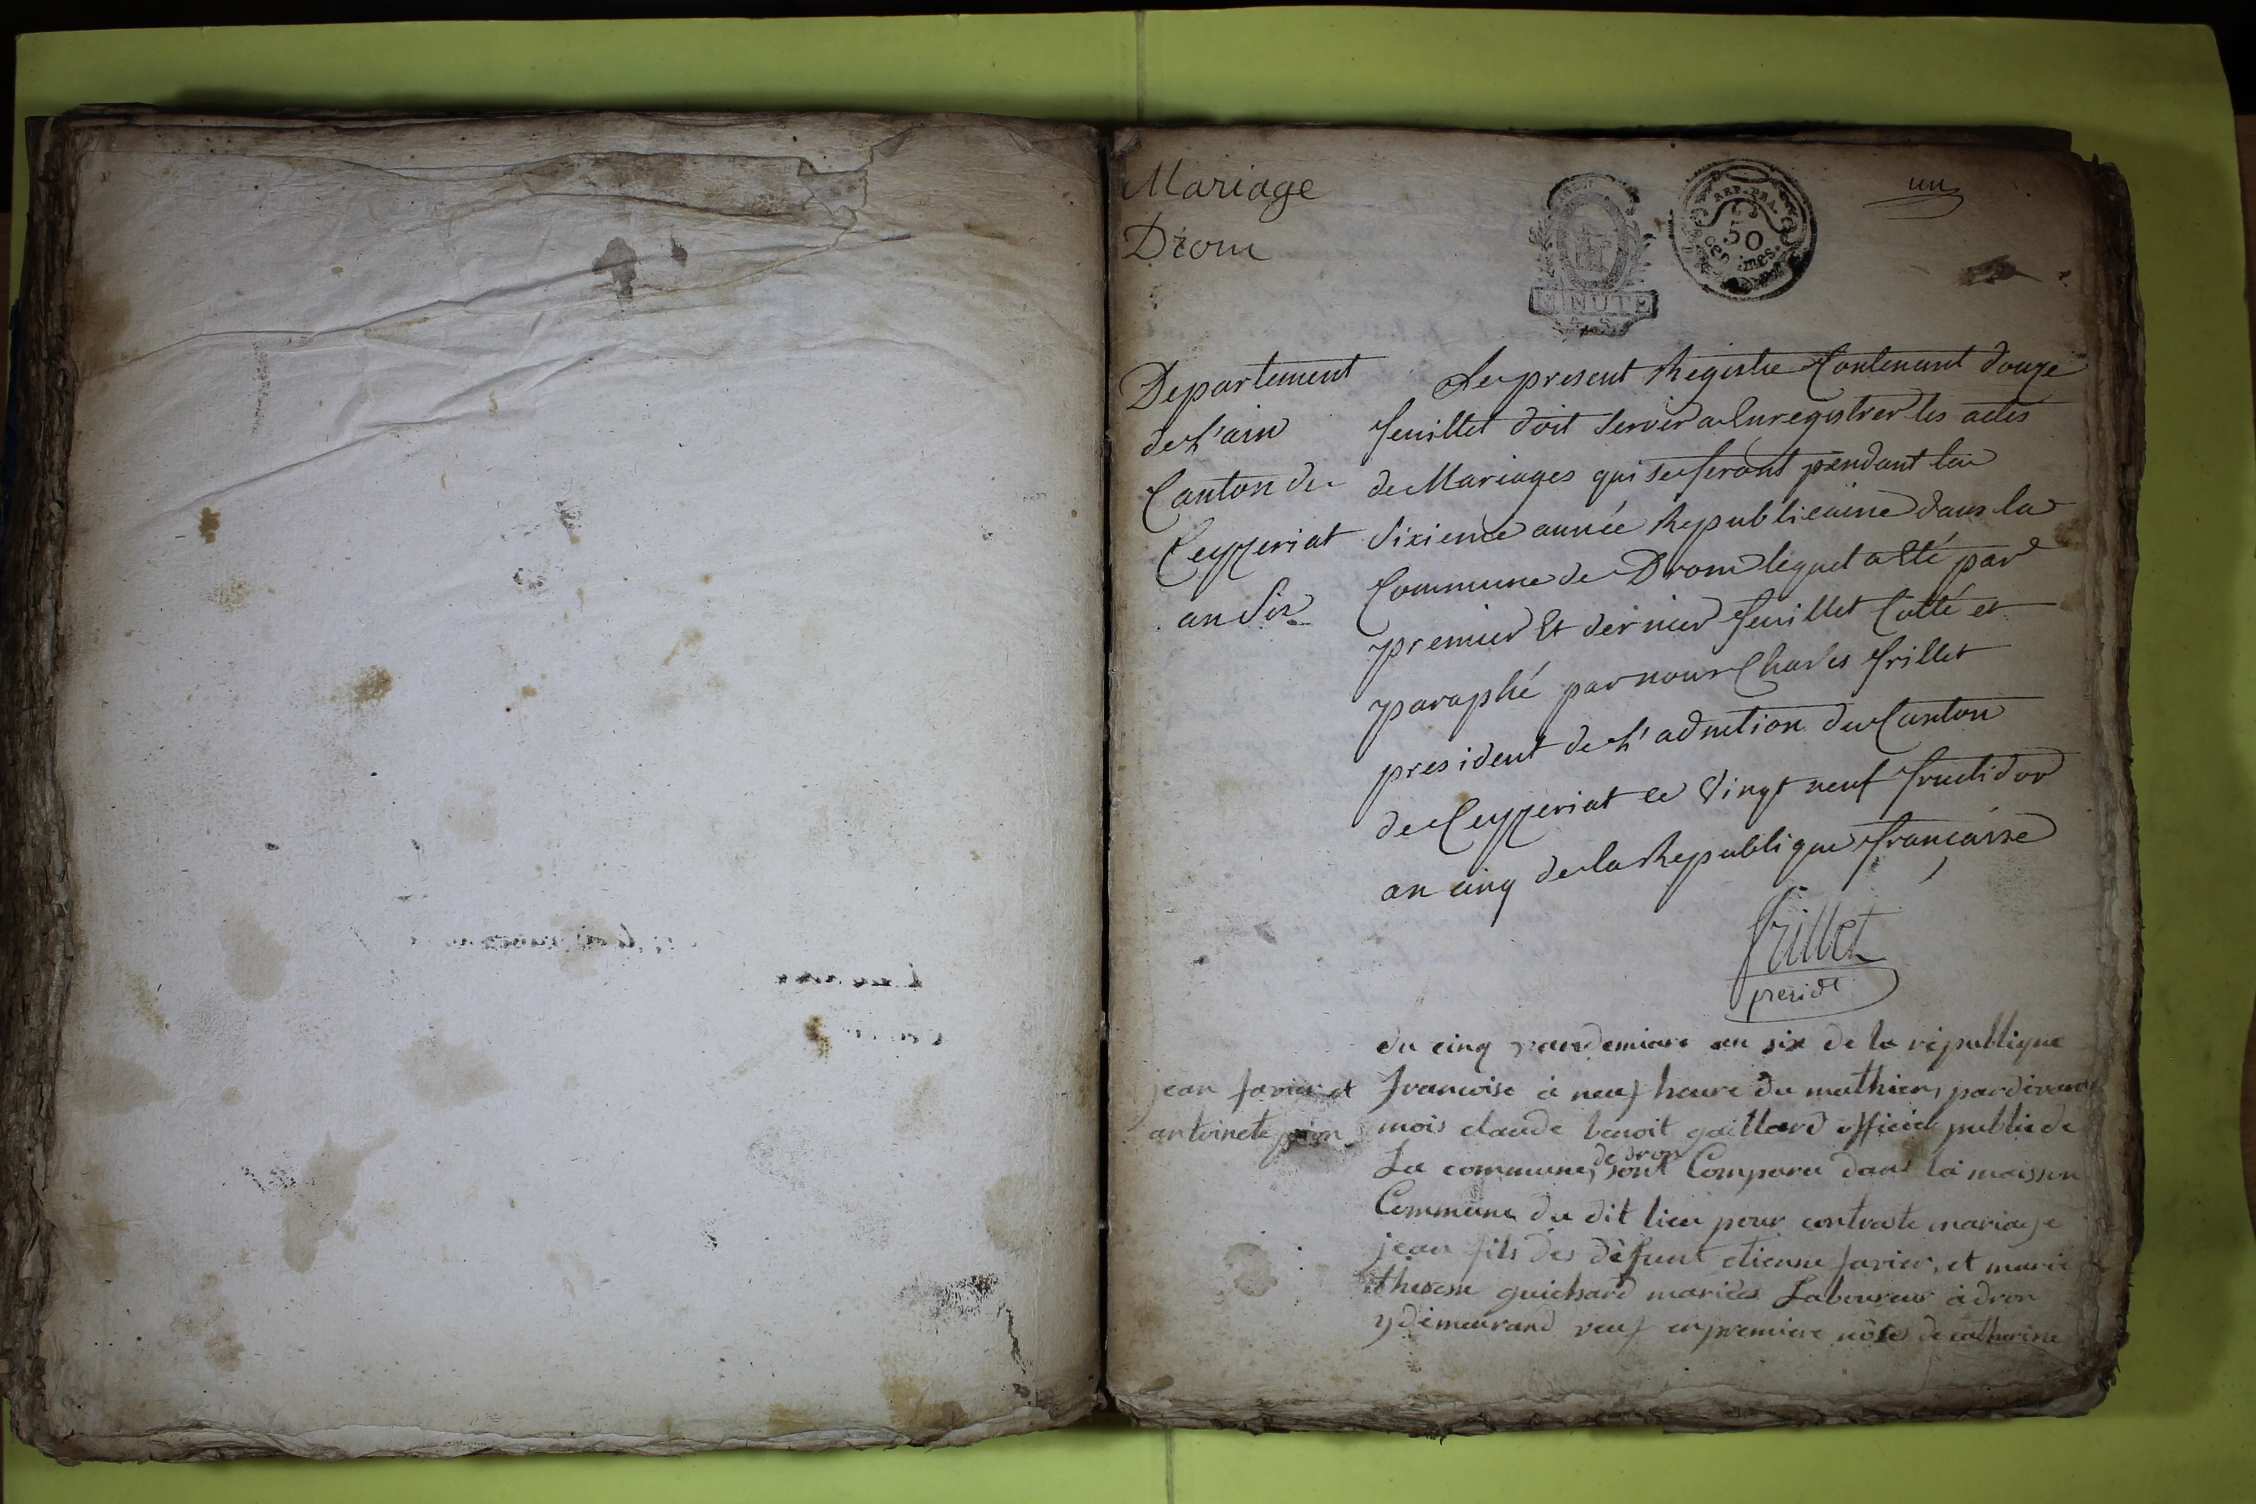 Mariage
Drom
MINUTE
REP. FRA.
50
centimes
un
Departement
de L'ain
Canton de
Ceyzeriat
an Six
Le present Registre Contenant douze
feuillet doit Servir a Enregistrer les actes
de Mariages qui se feront pendant la
Sixieme année Republicaine dans la
Commune de Drom lequel a Eté par
premier Et dernier feuillet Cotté et
paraphé par nous Charles frillet
president de L'admtion du Canton
de Ceyzeriat le Vingt neuf fructidor
an cinq de la Republique francaise
frillet
preside
jean favier et
antoinete
du cinq vandemiare an six de la république
francoise à neuf heure du mathien, pardevand
mois claude benoit gaillard officié publie de
La commune de dron, sont Comparu dans la maison
Commune du dit lieu pour contracte mariage
jean fils des défunt etienne favier, et marie
therese guichard mariés Laboureur à dron
y demeurand veuf en premiere nôse de catherine